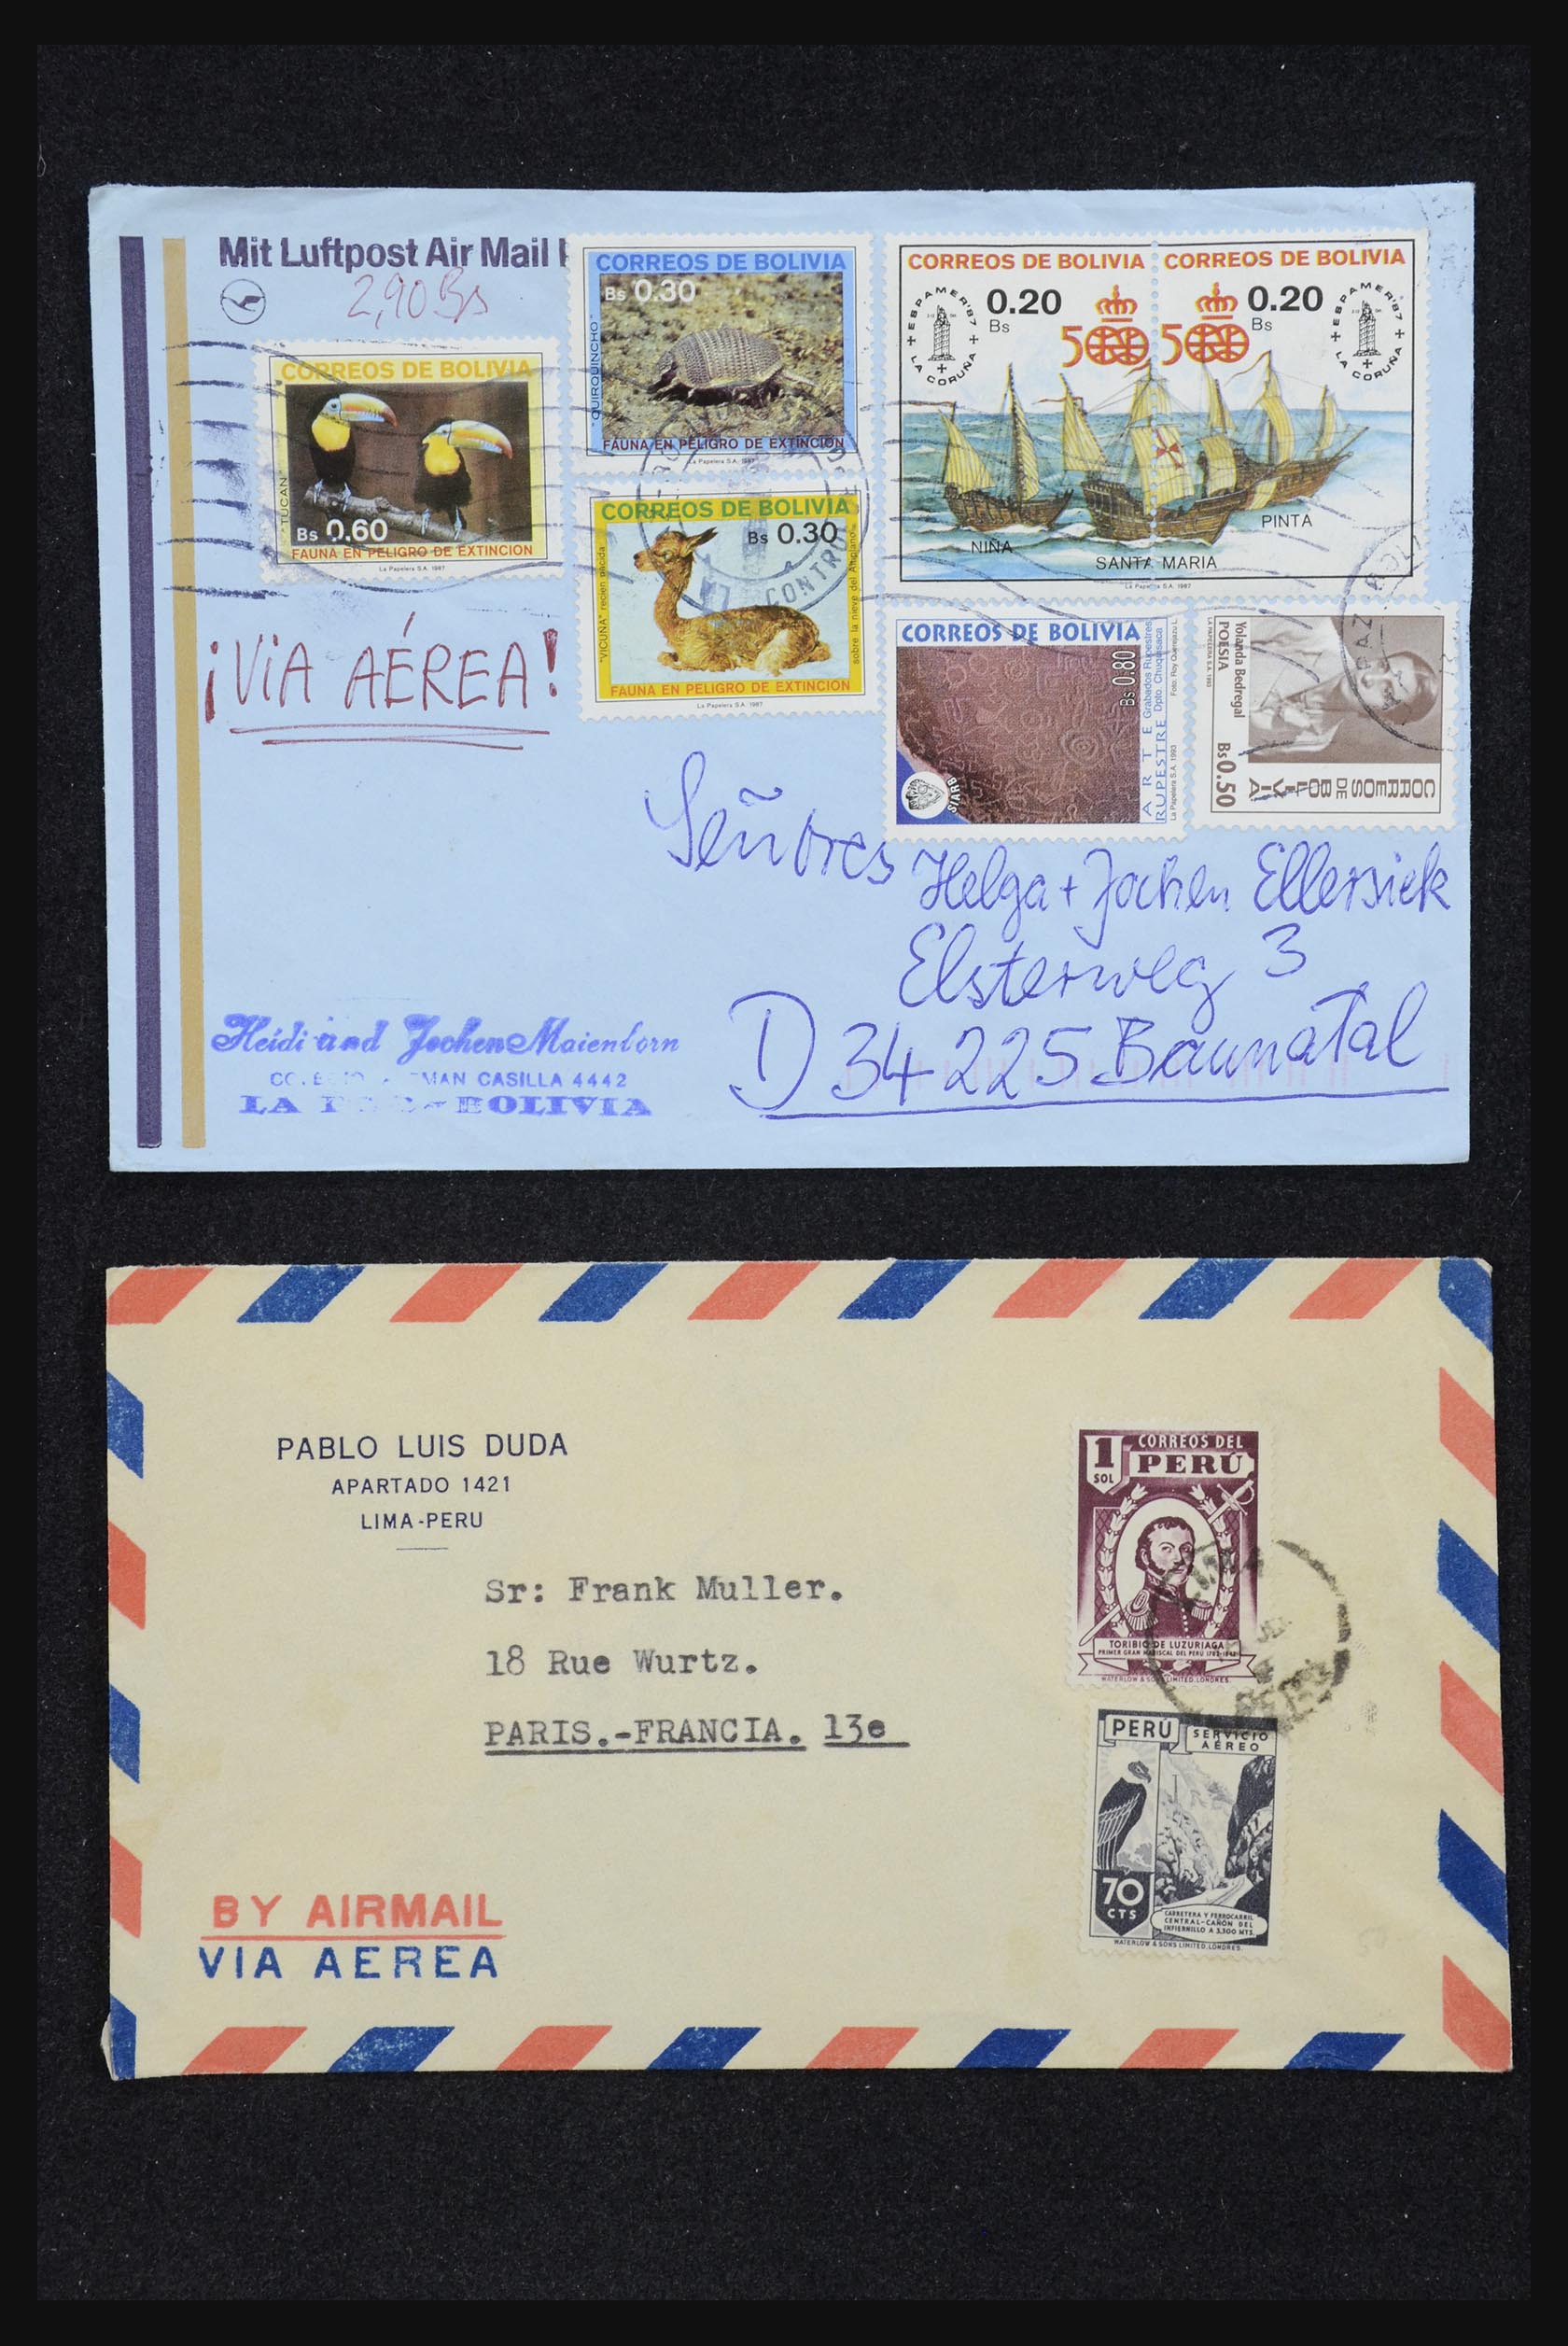 Mit Luftpost Air Mail
2,90 Bs
CORREOS DE BOLIVIA
"TUCAN"
Bs 0.60
FAUNA EN PELIGRO DE EXTINCION
La Papelera S.A. 1987
CORREOS DE BOLIVIA
Bs 0.30
"QUIRQUINCHO"
FAUNA EN PELIGRO DE EXTINCION
La Papelera S.A. 1987
CORREOS DE BOLIVIA
Bs 0.30
"VICUÑA" recien nacida
sobre la nieve del Altiplano.
FAUNA EN PELIGRO DE EXTINCION
La Papelera S.A. 1987
CORREOS DE BOLIVIA CORREOS DE BOLIVIA
ESPAMER'87
LA CORUÑA
0.20
Bs
500
500
0.20
Bs
ESPAMER'87
LA CORUÑA
NIÑA
SANTA MARIA
PINTA
La Papelera S.A. 1987
CORREOS DE BOLIVIA
Bs 0.80
ARTE
RUPESTRE
Grabados Rupestres
Dpto. Chuquisaca
Foto: Roy Querejazu L.
La Papelera S.A. 1993
SIARB
Yolanda Bedregal
POESIA
LA PAPELERA S.A. 1993
Bs 0.50
CORREOS
DE
BOLIVIA
¡ViA AÉREA!
Señores Helga + Jochen Ellersiek
Elsterweg 3
D 34225 Baunatal
Heidi and Jochen Maienborn
MAN CASILLA 4442
LA BOLIVIA
PABLO LUIS DUDA
APARTADO 1421
LIMA-PERU
Sr: Frank Muller.
18 Rue Wurtz.
PARIS.-FRANCIA. 13e
1
SOL
CORREOS DEL
PERÚ
TORIBIO DE LUZURIAGA
PRIMER GRAN MARISCAL DEL PERU
WATERLOW & SONS LIMITED. LONDRES.
LIMA
PERU
PERÚ
SERVICIO
AÉREO
70
CTS
CARRETERA Y FERROCARRIL
CENTRAL-CAÑON DEL
INFIERNILLO A 3,300 MTS.
WATERLOW & SONS LIMITED. LONDRES.
BY AIRMAIL
VIA AEREA